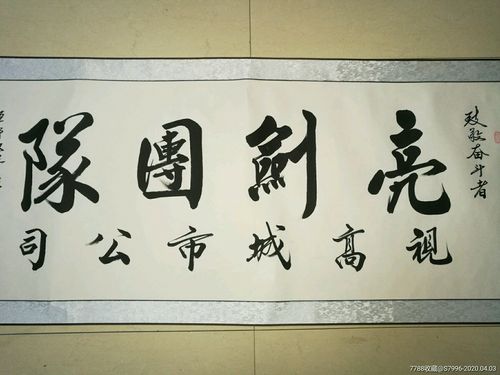 致敬奋斗者
亮劍團隊
視高城市公司
7788收藏@S7996-2020.04.03